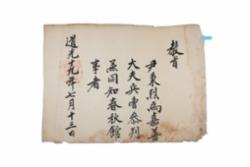 敎旨
尹東烈爲嘉善
大夫兵曹參判
兼同知春秋館
事者
道光十九年七月十三日